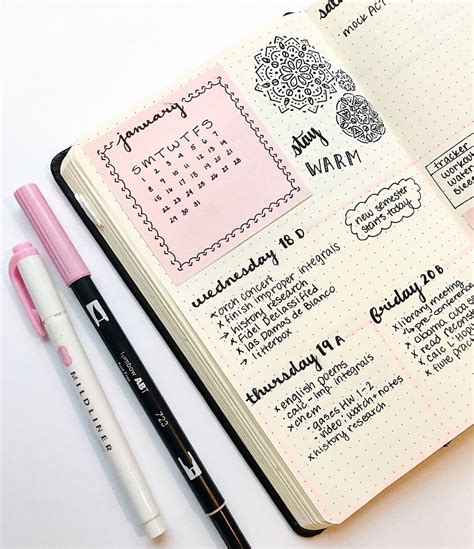 january
S M T W T F S
1 2 3 4 5 6 7
8 9 10 11 12 13 14
15 16 17 18 19 20 21
22 23 24 25 26 27 28
29 30 31
stay
WARM
wednesday 18 D
x orch concert
x finish improper integrals
→ history research
x Fidel Declassified
x las Damas de Blanco
→ litterbox
new semester
starts today
thursday 19 A
x english poems
x calc - imp integrals
x chem
- gases HW 1-2
- video: watch + notes
x history research
mock ACT
tracker
worko
water
friday 20 B
x library meeting
- pre-conference
x obama cuba
x read
x calc
x flute
MILDLINER
Tombow ABT
723